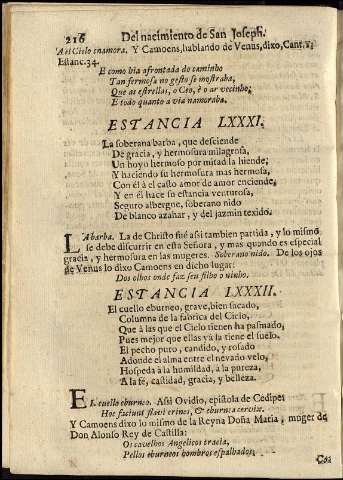 216 Del nacimiento de San Joseph.
A el Cielo enamora. Y Camoens, hablando de Venus, dixo, Cant. 1.
Estanc. 34.
E como hia afrontada do caminho
Tan fermosa no gesto se mostraba,
Que as estrellas, o Ceo, è o ar vecinho;
E todo quanto a via namoraba.
ESTANCIA LXXXI.
La soberana barba, que desciende
De gracia, y hermosura milagrosa,
Un hoyo hermoso por mitad la hiende;
Y haciendo su hermosura mas hermosa,
Con èl à el casto amor de amor enciende,
Y en èl hace su estancia venturosa,
Seguro albergue, soberano nido
De blanco azahar, y del jazmin texido.
LA barba. La de Christo fué assi tambien partida, y lo mismo
se debe discurrir en esta Señora, y mas quando es especial
gracia, y hermosura en las mugeres. Soberano nido. De los ojos
de Venus lo dixo Camoens en dicho lugar:
Dos olhos onde faz seu filho o ninho.
ESTANCIA LXXXII.
El cuello eburneo, grave, bien sacado,
Columna de la fabrica del Cielo,
Que à las que el Cielo tienen ha pasmado,
Pues mejor que ellas và la tiene el suelo.
El pecho puro, candido, y rosado
Adonde el alma entre el nevado velo,
Hospeda à la humildad, à la pureza,
A la fé, castidad, gracia, y belleza.
EL cuello eburneo. Assi Ovidio, epistola de Cedipe:
Hoc faciunt flavi crines, & eburnea cervix.
Y Camoens dixo lo mismo de la Reyna Doña Maria, muger de
Don Alonso Rey de Castilla:
Os cavelhos Angelicos trazia,
Pellos eburneos hombros espalhados;